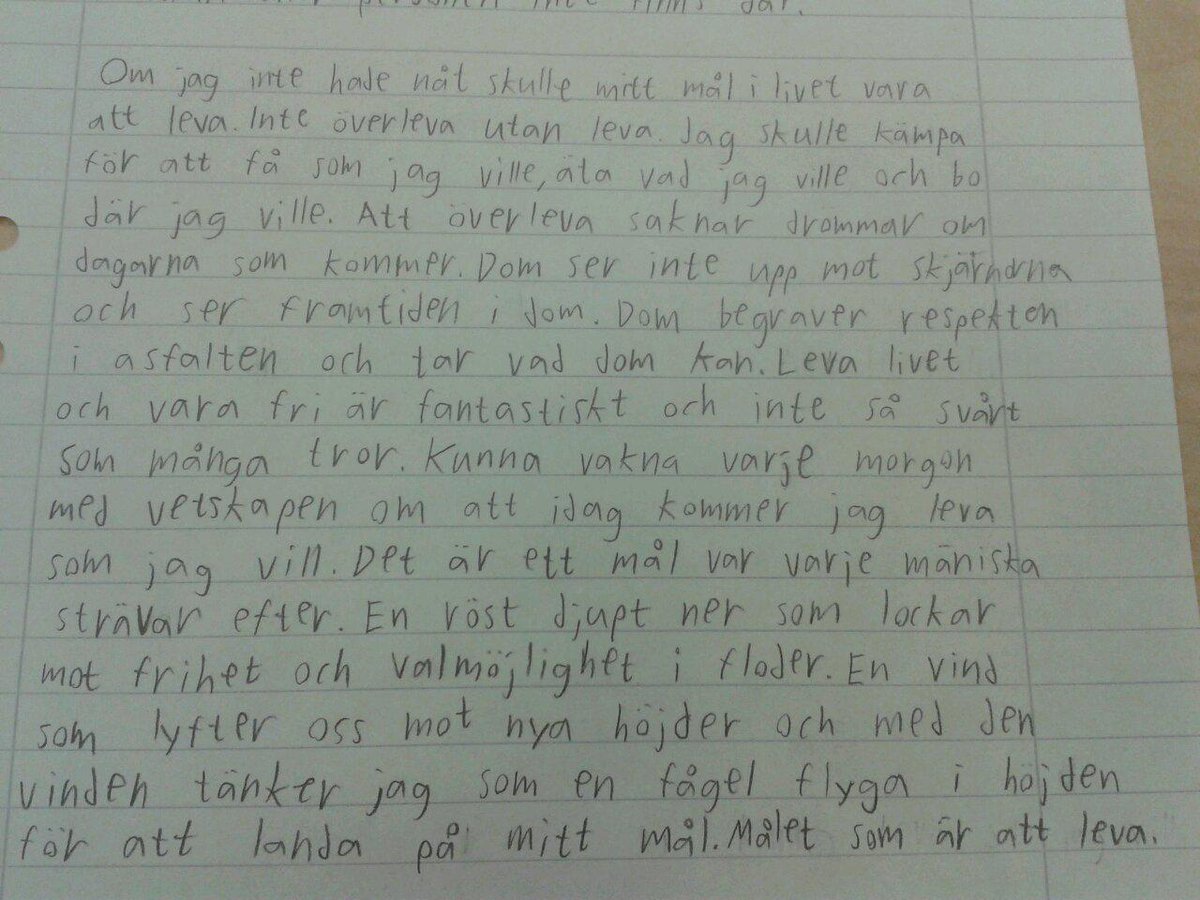 personen inte finns där.
Om jag inte hade nåt skulle mitt mål i livet vara
att leva. Inte överleva utan leva. Jag skulle kämpa
för att få som jag ville, äta vad jag ville och bo
där jag ville. Att överleva saknar drömmar om
dagarna som kommer. Dom ser inte upp mot skjärnorna
och ser framtiden i dom. Dom begraver respekten
i asfalten och tar vad dom kan. Leva livet
och vara fri är fantastiskt och inte så svårt
som många tror. Kunna vakna varje morgon
med vetskapen om att idag kommer jag leva
som jag vill. Det är ett mål var varje mäniska
strävar efter. En röst djupt ner som lockar
mot frihet och valmöjlighet i floder. En vind
som lyfter oss mot nya höjder och med den
vinden tänker jag som en fågel flyga i höjden
för att landa på mitt mål. Målet som är att leva.